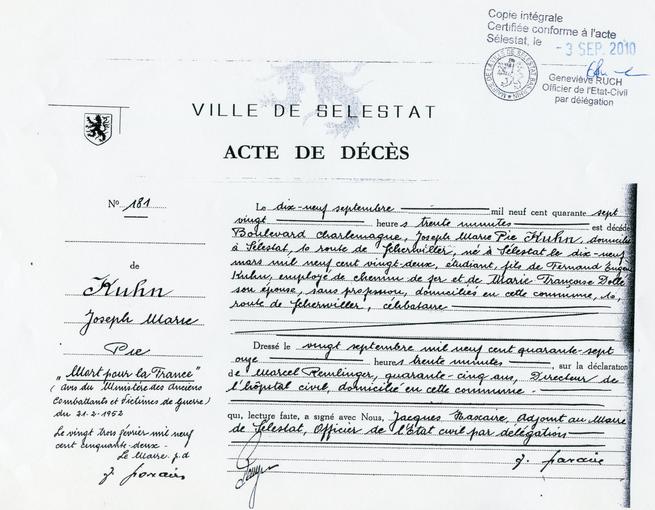 Copie intégrale
Certifiée conforme à l'acte
Sélestat, le
- 3 SEP. 2010
Geneviève RUCH
Officier de l'Etat-Civil
par délégation
VILLE DE SELESTAT
ACTE DE DÉCÈS
No 181
de
Kuhn
Joseph Marie
Pie
"Mort pour la France"
(avis du Ministère des Anciens
Combattants et Victimes de Guerre)
du 21-2-1952
Le vingt trois février mil neuf
cent cinquante-deux.
Le Maire p.d
Le dix-neuf septembre mil neuf cent quarante sept
vingt heures trente minutes est décédé
Boulevard Charlemagne, Joseph Marie Pie Kuhn, domicilié
à Sélestat, route de Scherwiller, né à Sélestat le dix-neuf
mars mil neuf cent vingt-deux, étudiant, fils de Fernand Eugène
Kuhn, employé de chemin de fer et de Marie Françoise
son épouse, sans profession, domiciliés en cette commune,
route de Scherwiller, célibataire
Dressé le vingt septembre mil neuf cent quarante-sept
onze heures trente minutes, sur la déclaration
de Marcel Remlinger, quarante-cinq ans, Directeur de
l'hôpital civil, domicilié en cette commune.
qui, lecture faite, a signé avec Nous, Jacques, Adjoint au Maire
de Sélestat, Officier de l'Etat civil par délégation